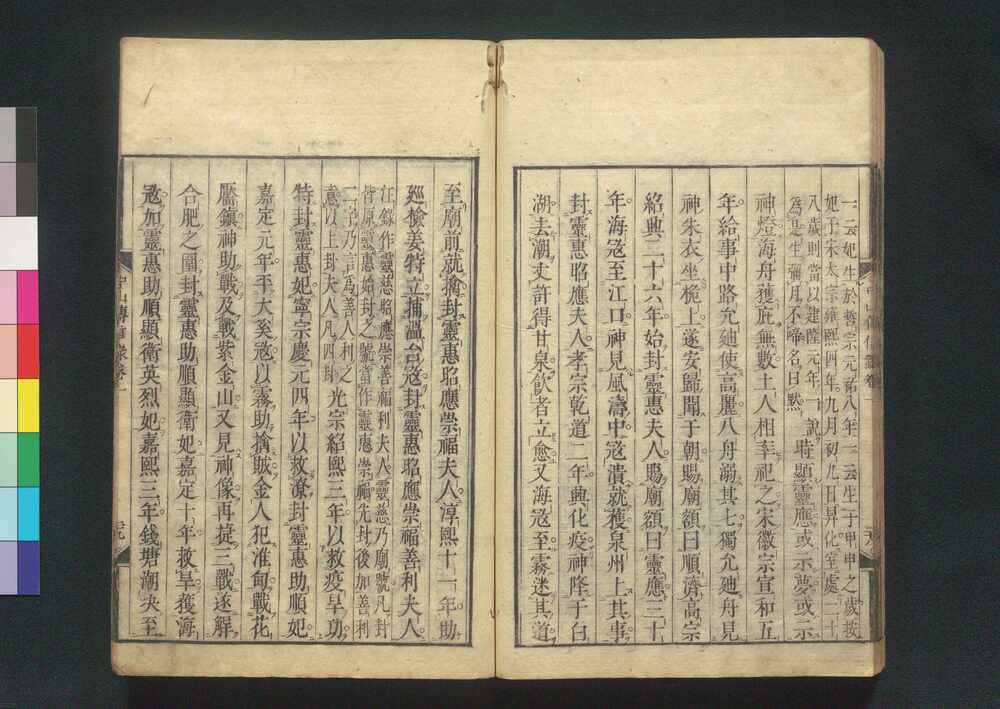 一云妃生於哲宗元祐八年一云生于甲申之歲按
妃于宋太宗雍熙四年九月初九日昇化室處二十
八歲則當以建隆元年一說
為是生彌月不啼名曰默
時顯靈應或示夢或示
神燈海舟獲庇無數土人相率祀之宋徽宗宣和五
年給事中路允廸使高麗八舟溺其七獨允廸舟見
神朱衣坐桅上遂安歸聞于朝賜廟額曰順濟高宗
紹興二十六年始封靈惠夫人賜廟額曰靈應三十
年海宼至江口神見風濤中宼潰就獲泉州上其事
封靈惠昭應夫人孝宗乾道二年興化疫神降于白
湖去潮丈許得甘泉飲者立愈又海宼至霧迷其道
至廟前就擒封靈惠昭應崇福夫人淳熙十一年助
廵檢姜特立捕溫台宼封靈惠昭應崇福善利夫人
汪錄作靈慈昭應崇善福利夫人靈慈乃廟號凡封
皆原靈惠始封之號當作靈惠崇福先封後加善利
二字乃言爲善人利之
意以上封夫人凡四
光宗紹熙三年以救疫旱功
特封靈惠妃寧宗慶元四年以救潦封靈惠助順妃
嘉定元年平大奚宼以霧助擒賊金人犯淮甸戰花
靨鎮神助戰及戰紫金山又見神像再捷三戰遂解
合肥之圍封靈惠助順顯衛妃嘉定十年救旱獲海
宼加靈惠助順顯衛英烈妃嘉熙三年錢塘潮決至
中山傳信錄卷一